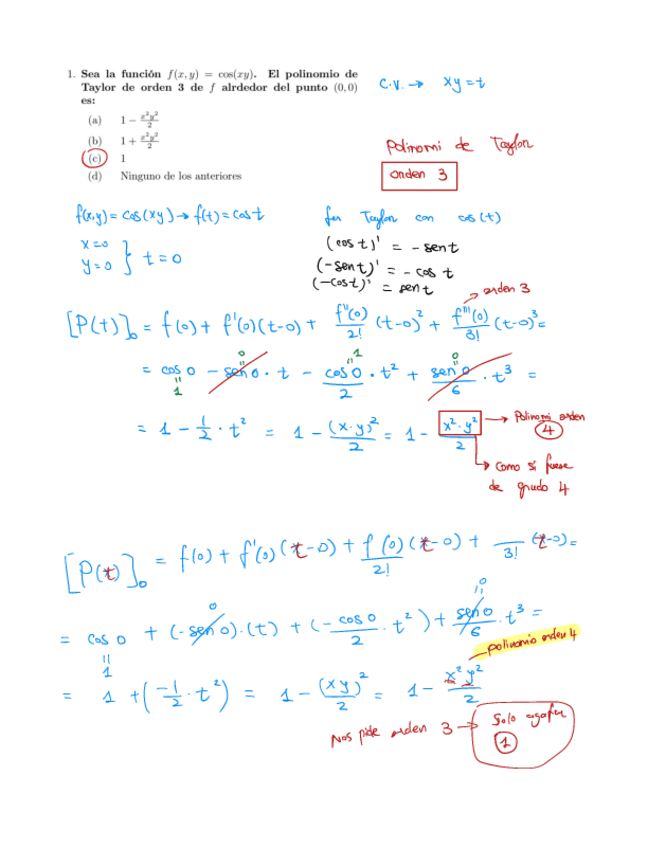 1. Sea la función f(x, y) = cos(xy). El polinomio de
Taylor de orden 3 de f alrdedor del punto (0,0)
es:
(a) 1 − x²y²/2
(b) 1 + x²y²/2
(c) 1
(d) Ninguno de los anteriores
C.V. → xy = t
Polinomi de Taylor
orden 3
f(x,y) = cos(xy) → f(t) = cos t
x=0
y=0 } t = 0
fer Taylor con cos(t)
(cos t)' = - sen t
(-sen t)' = - cos t
(-cos t)' = sen t
→ orden 3
[P(t)]₀ = f(0) + f'(0)(t-0) + f''(0)/2! (t-0)² + f'''(0)/3! (t-0)³ =
= cos 0 - sen 0 · t - cos 0/2 · t² + sen 0/6 · t³ =
= 1 - 1/2 · t² = 1 - (x·y)²/2 = 1 - x²·y²/2
→ Polinomi orden 4
→ Como si fuese de grado 4
[P(t)]₀ = f(0) + f'(0)(t-0) + f(0)/2! (t-0) + /3! (t-0) =
= cos 0 + (-sen 0)·(t) + (- cos 0/2 · t²) + sen 0/6 · t³ =
polinomio orden 4
= 1 + (-1/2 · t²) = 1 - (xy)²/2 = 1 - x²y²/2
Nos pide orden 3 → Solo agafar 1